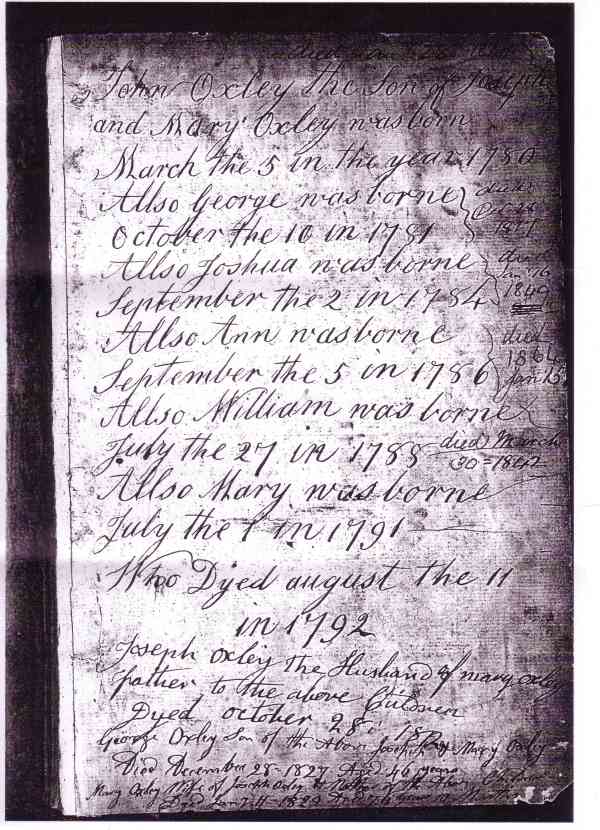 John Oxley the Son of Joseph
and Mary Oxley was born
March the 5 in the year 1780
Allso George was borne
October the 10 in 1781
died
1827
Allso Joshua was borne
September the 2 in 1784
died
Jan 16
1849
Allso Ann was borne
September the 5 in 1786
died
1864
Jan 15
Allso William was borne
July the 27 in 1788
died March
30 = 1842
Allso Mary was borne
July the 1 in 1791
Who Dyed august the 11
in 1792
Joseph Oxley the Husband of mary oxley
father to the above Children
Dyed october 28
George Oxley Son of the Above Joseph & Mary Oxley
Died December 28- 1827 Aged 46 years
Mary Oxley Wife of Joseph Oxley & Mother of the
Dyed